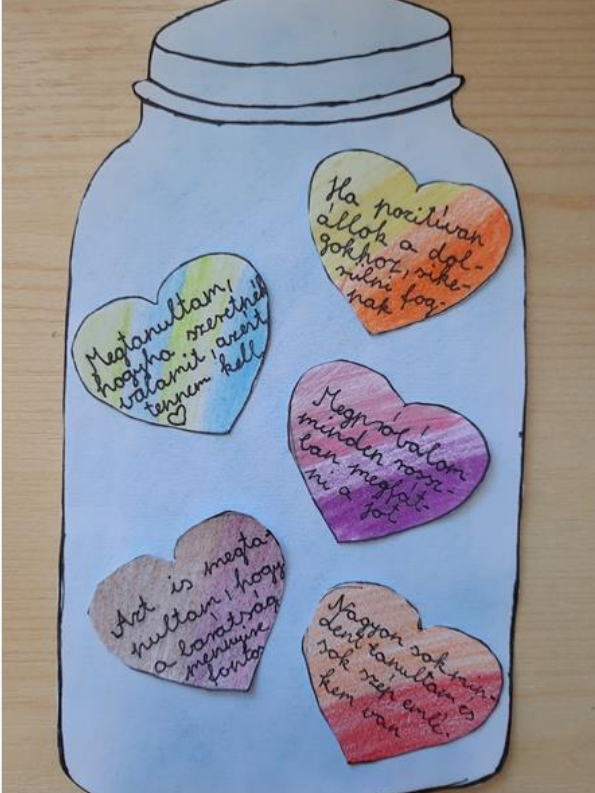 Ha pozitívan
állok a dol-
gokhoz, sike-
rülni fog-
nak
Megtanultam,
hogyha szeretnék
valamit, azért
tennem kell
Megpróbálom
minden rossz-
ban meglát-
ni a jót
Azt is megta-
nultam, hogy
a barátság
mennyire
fontos
Nagyon sok min-
dent tanultam és
sok szép emlé-
kem van